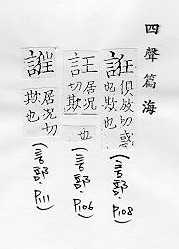 四聲篇海
俱放切惑
也欺也
(言部.P108)
居況
切欺
也
(言部.P106)
居況切
欺也
(言部.P11)